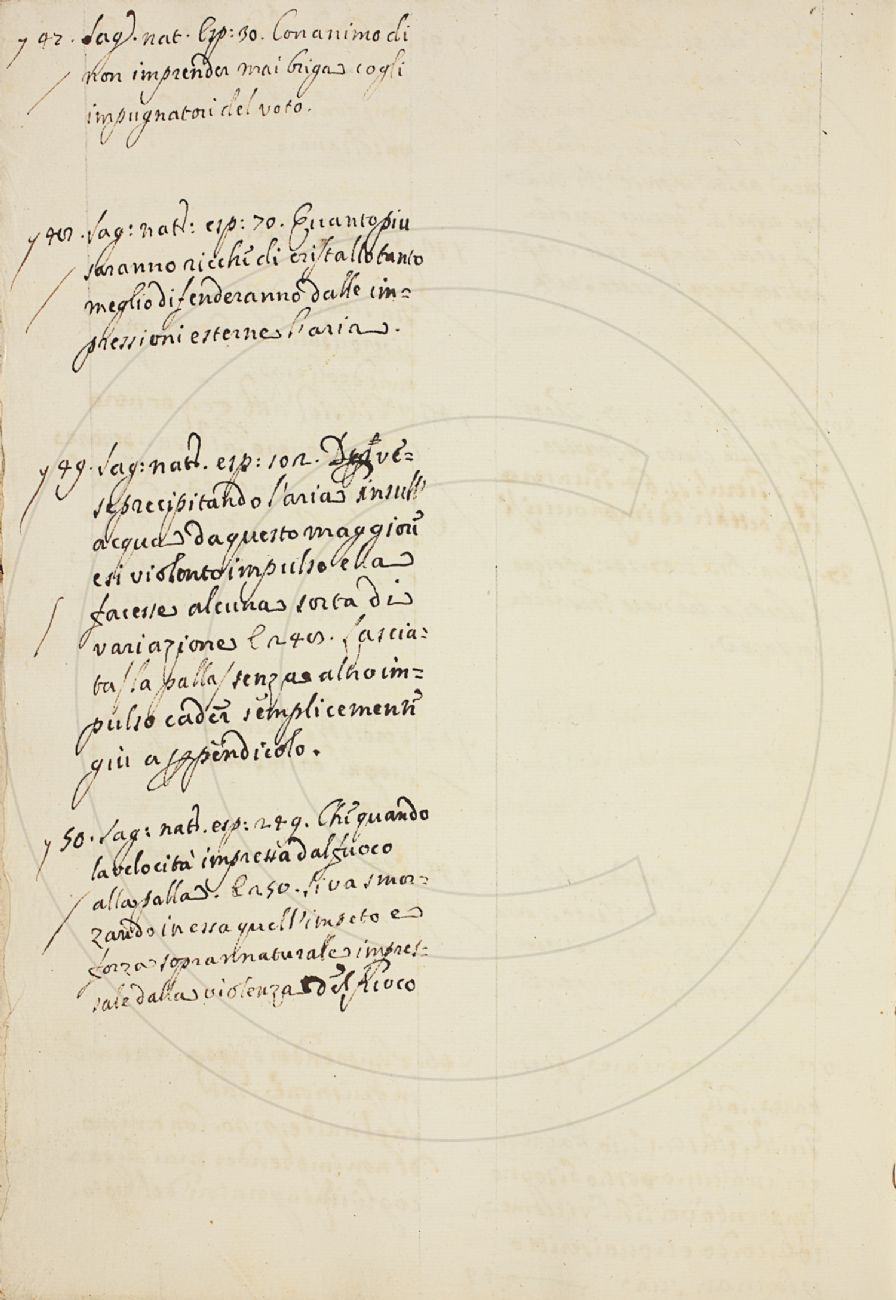 y 42. Sag. nat. Esp: 30. Con animo di
non imprender mai briga cogli
impugnatori del voto.
y 48. Sag: nat: esp: 70. Quanto piu
saranno ricche di cristallo tanto
meglio difenderanno dalle im=
pressioni esterne l'aria.
y 49. Sag: nat. esp: 102. ve=
se precipitando l'aria insull'
acqua da questo maggiore
e si violento impulso ella
facesse alcuna sorta di
variazione E 248. Lascia=
tasi la palla senza altro im=
pulso cader semplicemente
giù a ppendicolo.
y 50. Sag: nat. esp: 249. Che quando
la velocità impressa dal fuoco
alla palla. E 250. Si va smor=
zando in essa quell'impeto e
forza soprannaturale impres=
sale dalla violenza del fuoco